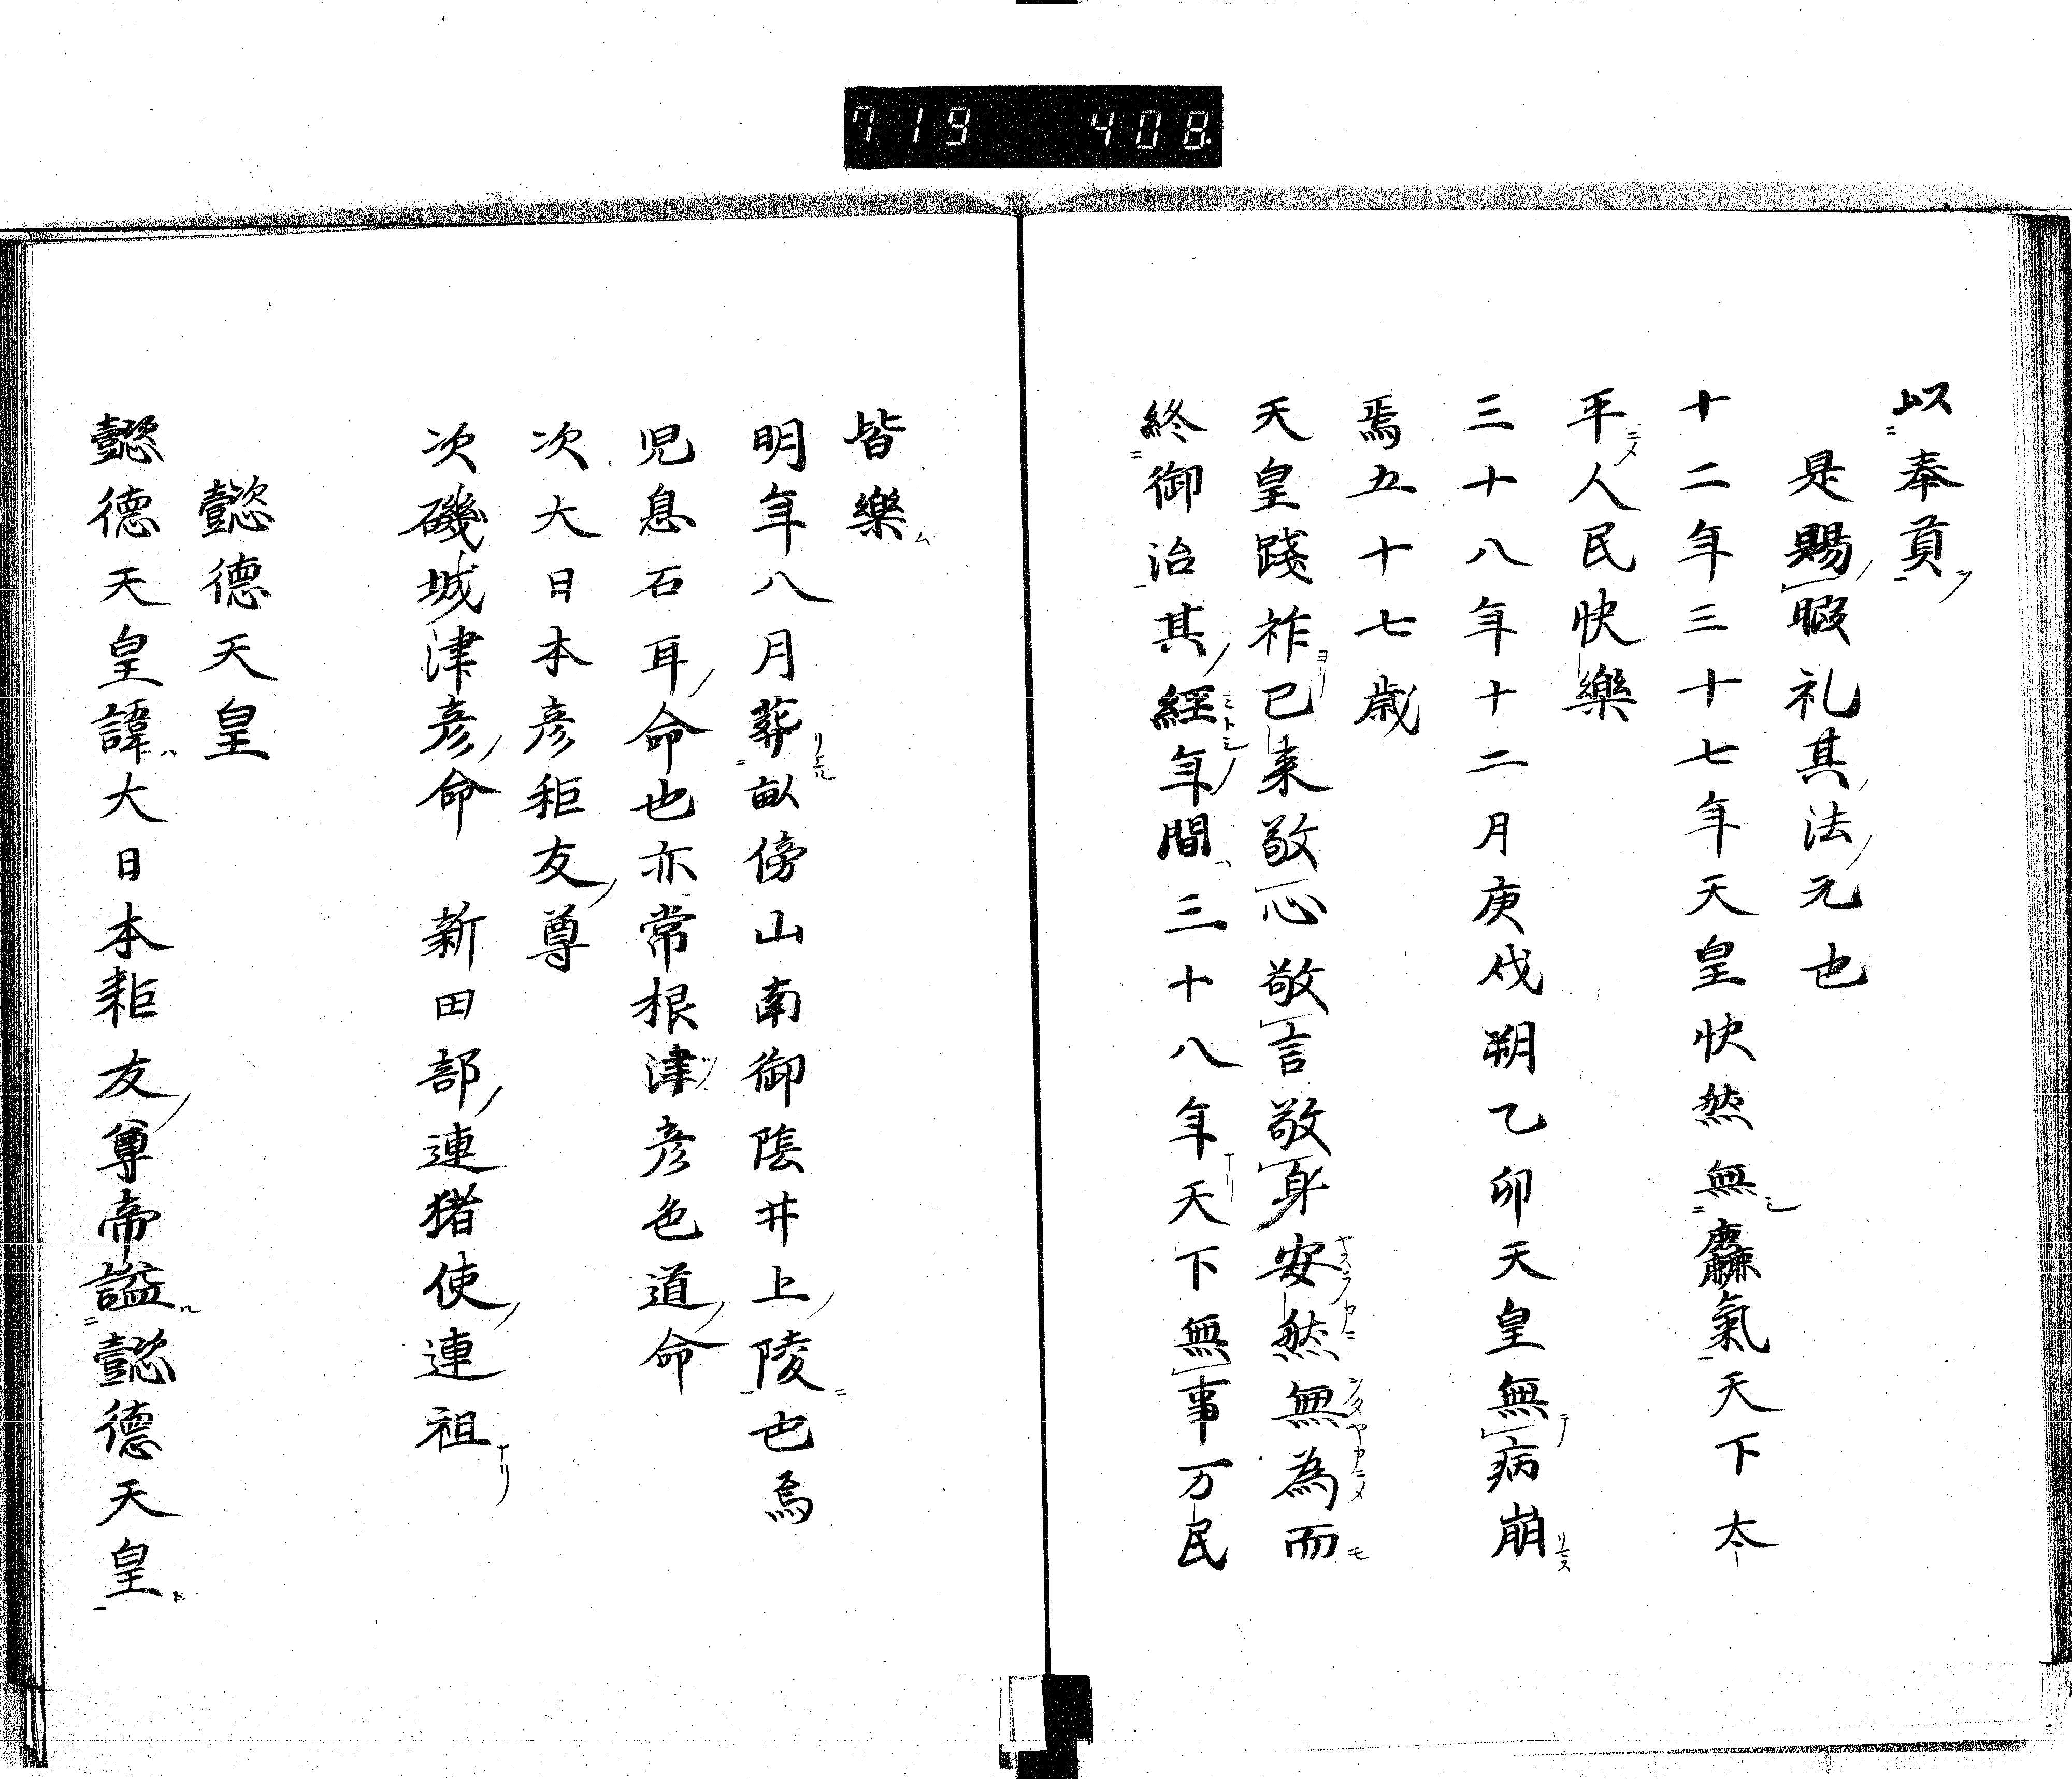 719 408
以奉貢
是賜暇礼其法元也
十二年三十七年天皇快然無麤氣天下太
平人民快樂
三十八年十二月庚戌朔乙卯天皇無病崩
焉五十七歳
天皇踐祚已来敬心敬言敬身安然無為而
終御治其經年間三十八年天下無事万民
皆樂
明年八月葬畝傍山南御陰井上陵也焉
児息石耳命也亦常根津彦色道命
次大日本彦耟友尊
次磯城津彦命 新田部連猪使連祖
懿德天皇
懿德天皇諱大日本耟友尊帝謚懿德天皇